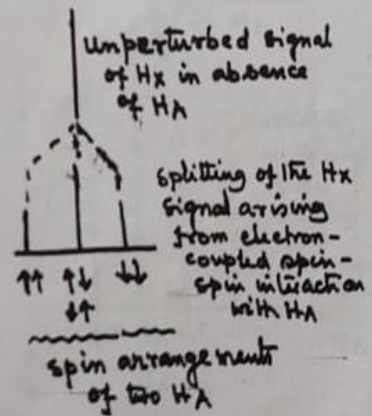 unperturbed signal
of Hx in absence
of HA
splitting of the Hx
signal arising
from electron-
coupled spin-
spin interaction
with HA
↑↑ ↑↓ ↓↓
↓↑
spin arrangements
of two HA